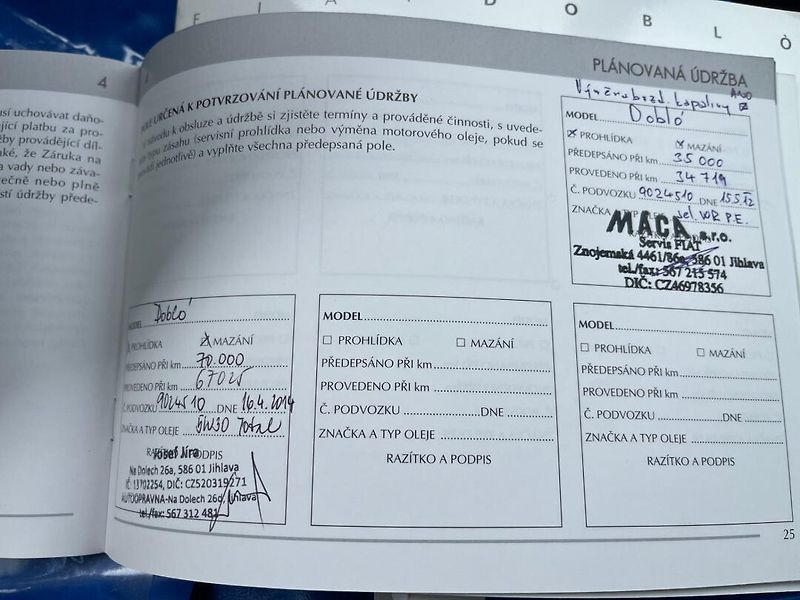 F I A T D O B L Ò
4
usí uchovávat daňo-
jící platbu za pro-
žby provádějící díl-
aké, že Záruka na
a vady nebo záva-
ečně nebo plně
stí údržby přede-
PLÁNOVANÁ ÚDRŽBA
URČENÁ K POTVRZOVÁNÍ PLÁNOVANÉ ÚDRŽBY
návodu k obsluze a údržbě si zjistěte termíny a prováděné činnosti, s uvede-
typu zásahu (servisní prohlídka nebo výměna motorového oleje, pokud se
jednotlivě) a vyplňte všechna předepsaná pole.
Výměna brzd. kapaliny ANO
MODEL Dobló
PROHLÍDKA MAZÁNÍ
PŘEDEPSÁNO PŘI km 35 000
PROVEDENO PŘI km 34 719
Č. PODVOZKU 9024510 DNE 15.5.12
ZNAČKA A TYP OLEJE sel. WR P.E.
MACA s.r.o.
Servis FIAT
Znojemská 4461/86a, 586 01 Jihlava
tel./fax: 567 215 574
DIČ: CZ46978356
MODEL Dobló
PROHLÍDKA MAZÁNÍ
PŘEDEPSÁNO PŘI km 70.000
PROVEDENO PŘI km 67025
Č. PODVOZKU 9024510 DNE 16.4.2014
ZNAČKA A TYP OLEJE 5W30 Total
RAZÍTKO A PODPIS
Josef Jíra
Na Dolech 26a, 586 01 Jihlava
IČ: 13702254, DIČ: CZ520319271
AUTOOPRAVNA-Na Dolech 26d, Jihlava
tel./fax: 567 312 481
MODEL
PROHLÍDKA MAZÁNÍ
PŘEDEPSÁNO PŘI km
PROVEDENO PŘI km
Č. PODVOZKU DNE
ZNAČKA A TYP OLEJE
RAZÍTKO A PODPIS
MODEL
PROHLÍDKA MAZÁNÍ
PŘEDEPSÁNO PŘI km
PROVEDENO PŘI km
Č. PODVOZKU DNE
ZNAČKA A TYP OLEJE
RAZÍTKO A PODPIS
25